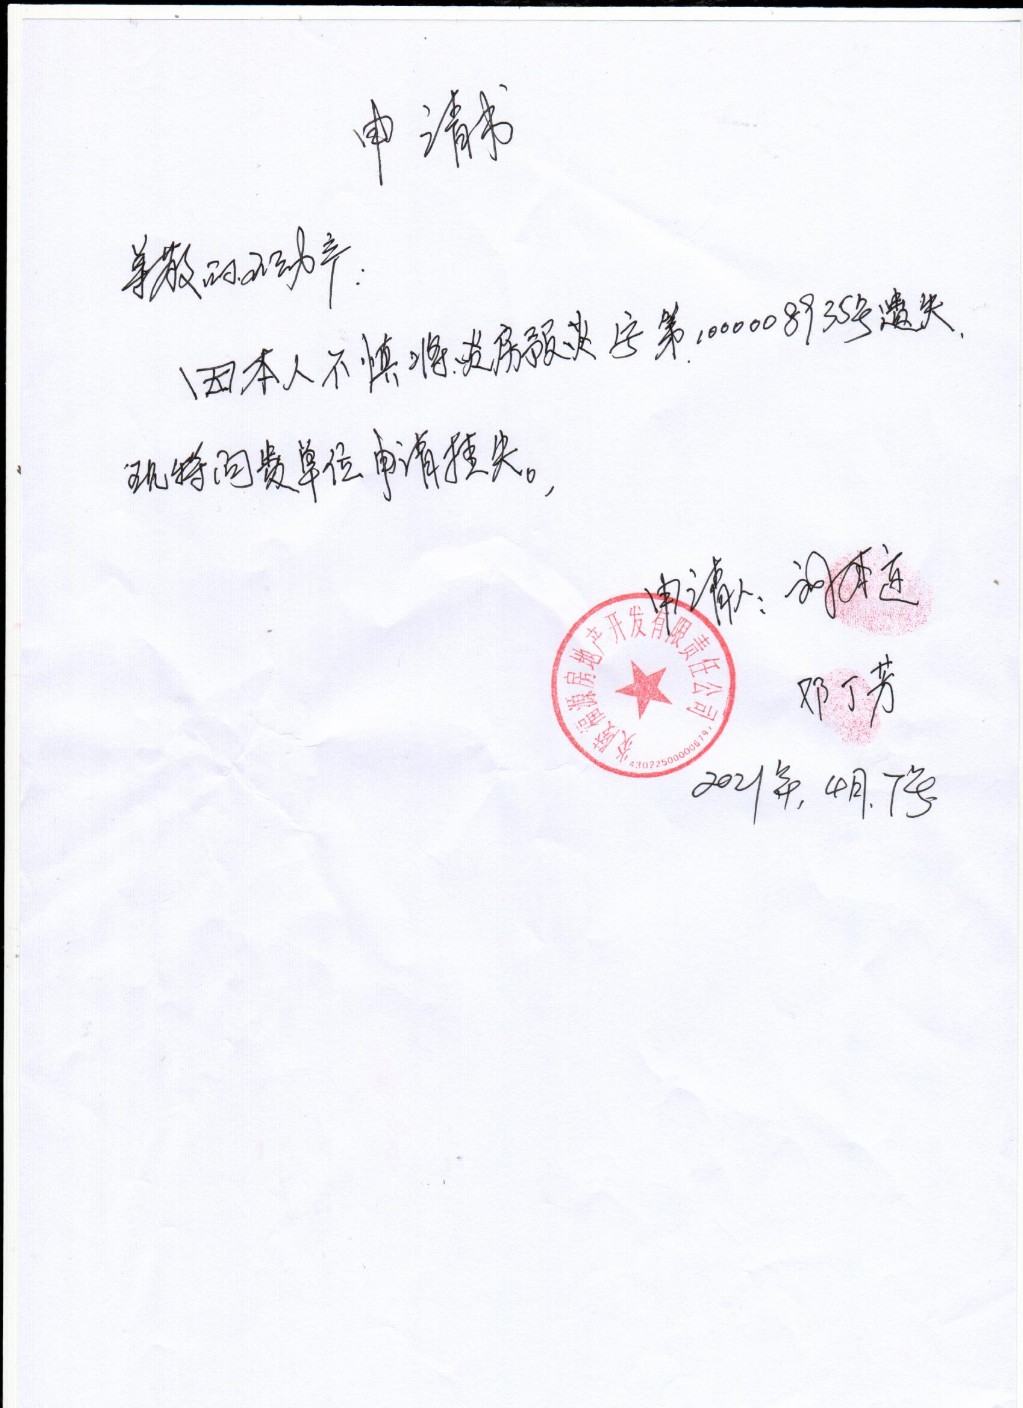 申请书
尊敬的不动产:
因本人不慎将炎房预炎字第1000008935号遗失,
现特向贵单位申请挂失。
申请人:
邓丁芳
炎陵福源房地产开发有限责任公司
2021年.4月.7号